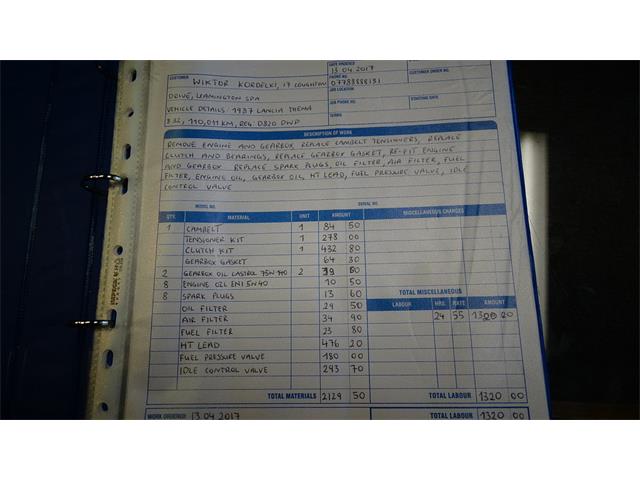 DATE ORDERED
13 04 2017
CUSTOMER WIKTOR KORDELKI, 17 COUGHTON
PHONE NO. 07783888151
CUSTOMER ORDER NO.
DRIVE, LEAMINGTON SPA
JOB LOCATION
VEHICLE DETAILS: 1987 LANCIA THEMA
JOB PHONE NO.
STARTING DATE
8.32, 110,011 KM, REG: D820 DWP
TERMS
DESCRIPTION OF WORK
REMOVE ENGINE AND GEARBOX, REPLACE CAMBELT TENSIONERS, REPLACE
CLUTCH AND BEARINGS, REPLACE GEARBOX GASKET, RE-FIT ENGINE
AND GEARBOX. REPLACE SPARK PLUGS, OIL FILTER, AIR FILTER, FUEL
FILTER, ENGINE OIL, GEARBOX OIL, HT LEAD, FUEL PRESSURE VALVE, IDLE
CONTROL VALVE
MODEL NO. SERIAL NO.
QTY. MATERIAL UNIT AMOUNT MISCELLANEOUS CHARGES
1 CAMBELT 1 84 50
TENSIONER KIT 1 278 00
CLUTCH KIT 1 432 80
GEARBOX GASKET 64 30
2 GEARBOX OIL CASTROL 75W140 2 39 00
8 ENGINE OIL ENI 5W40 10 50
TOTAL MISCELLANEOUS
8 SPARK PLUGS 13 60
LABOUR HRS. RATE AMOUNT
OIL FILTER 29 50
24 55 1320 00
AIR FILTER 34 90
FUEL FILTER 23 80
HT LEAD 476 20
FUEL PRESSURE VALVE 180 00
IDLE CONTROL VALVE 293 70
TOTAL MATERIALS 2129 50 TOTAL LABOUR 1320 00
WORK ORDERED 13 04 2017 TOTAL LABOUR 1320 00